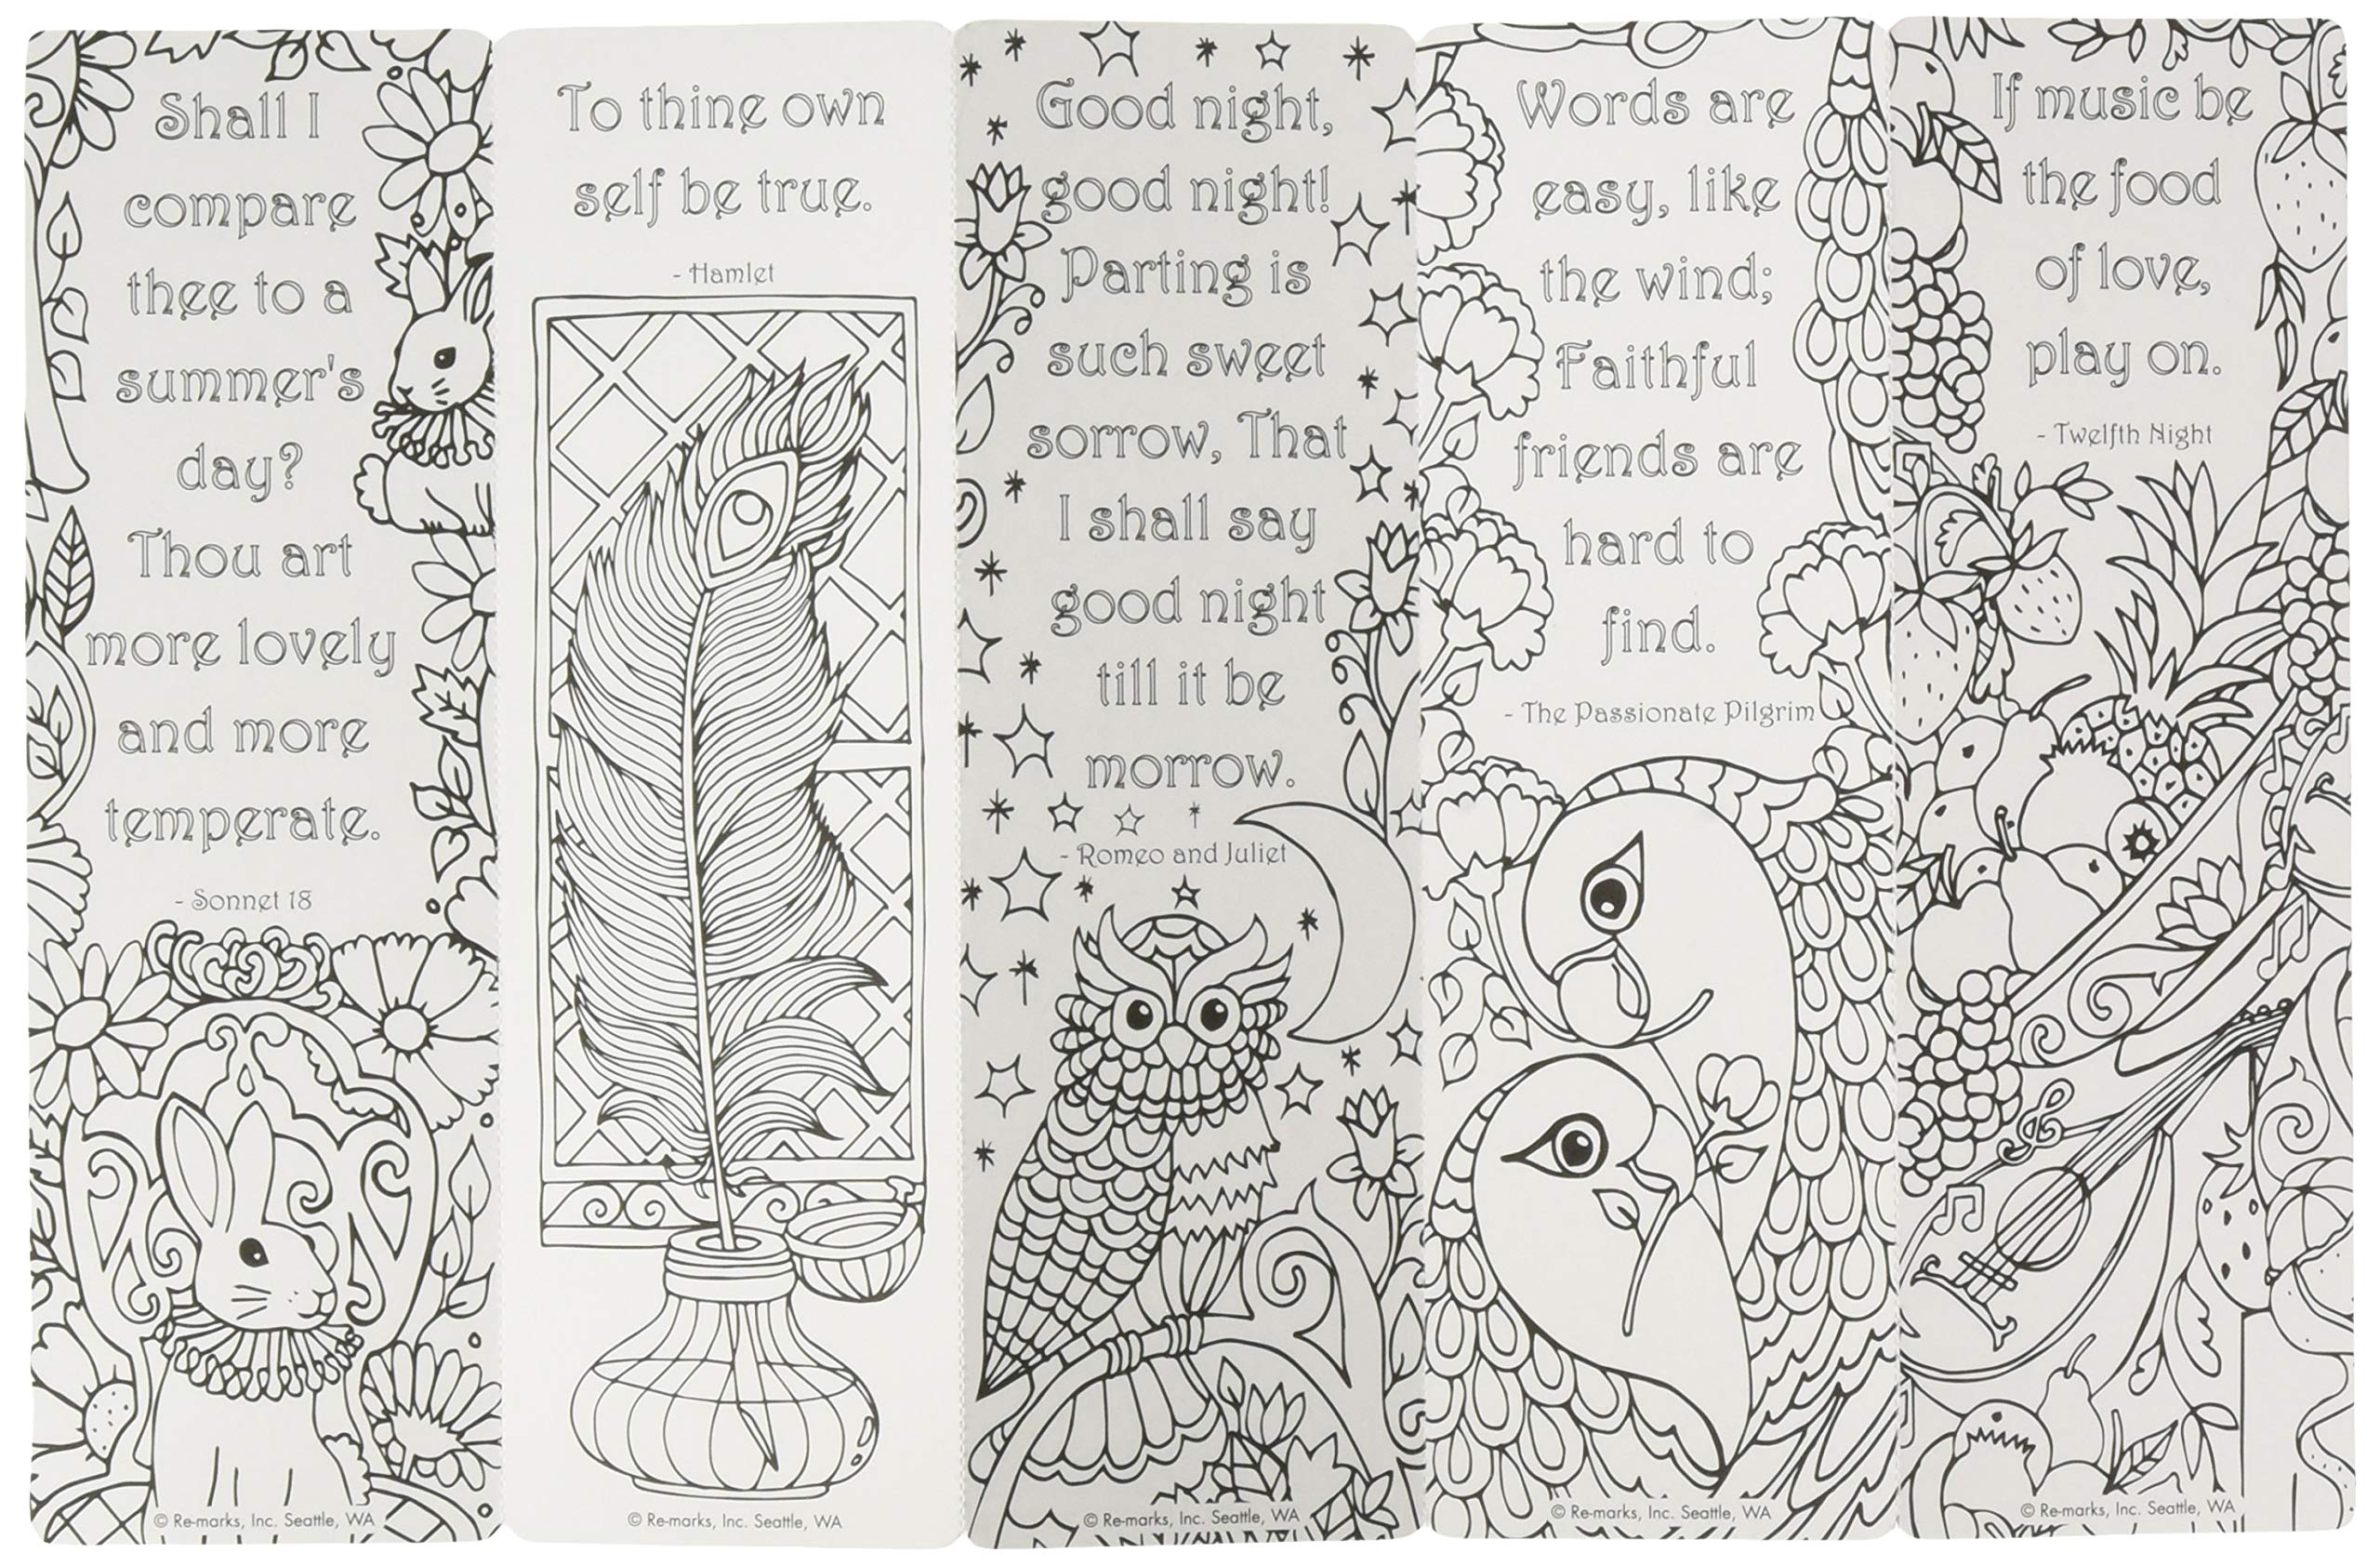 Shall I
compare
thee to a
summer's
day?
Thou art
more lovely
and more
temperate.
- Sonnet 18
© Re-marks, Inc. Seattle, WA
To thine own
self be true.
- Hamlet
© Re-marks, Inc. Seattle, WA
Good night,
good night!
Parting is
such sweet
sorrow, That
I shall say
good night
till it be
morrow.
- Romeo and Juliet
© Re-marks, Inc. Seattle, WA
Words are
easy, like
the wind;
Faithful
friends are
hard to
find.
- The Passionate Pilgrim
© Re-marks, Inc. Seattle, WA
If music be
the food
of love,
play on.
- Twelfth Night
© Re-marks, Inc. Seattle, WA